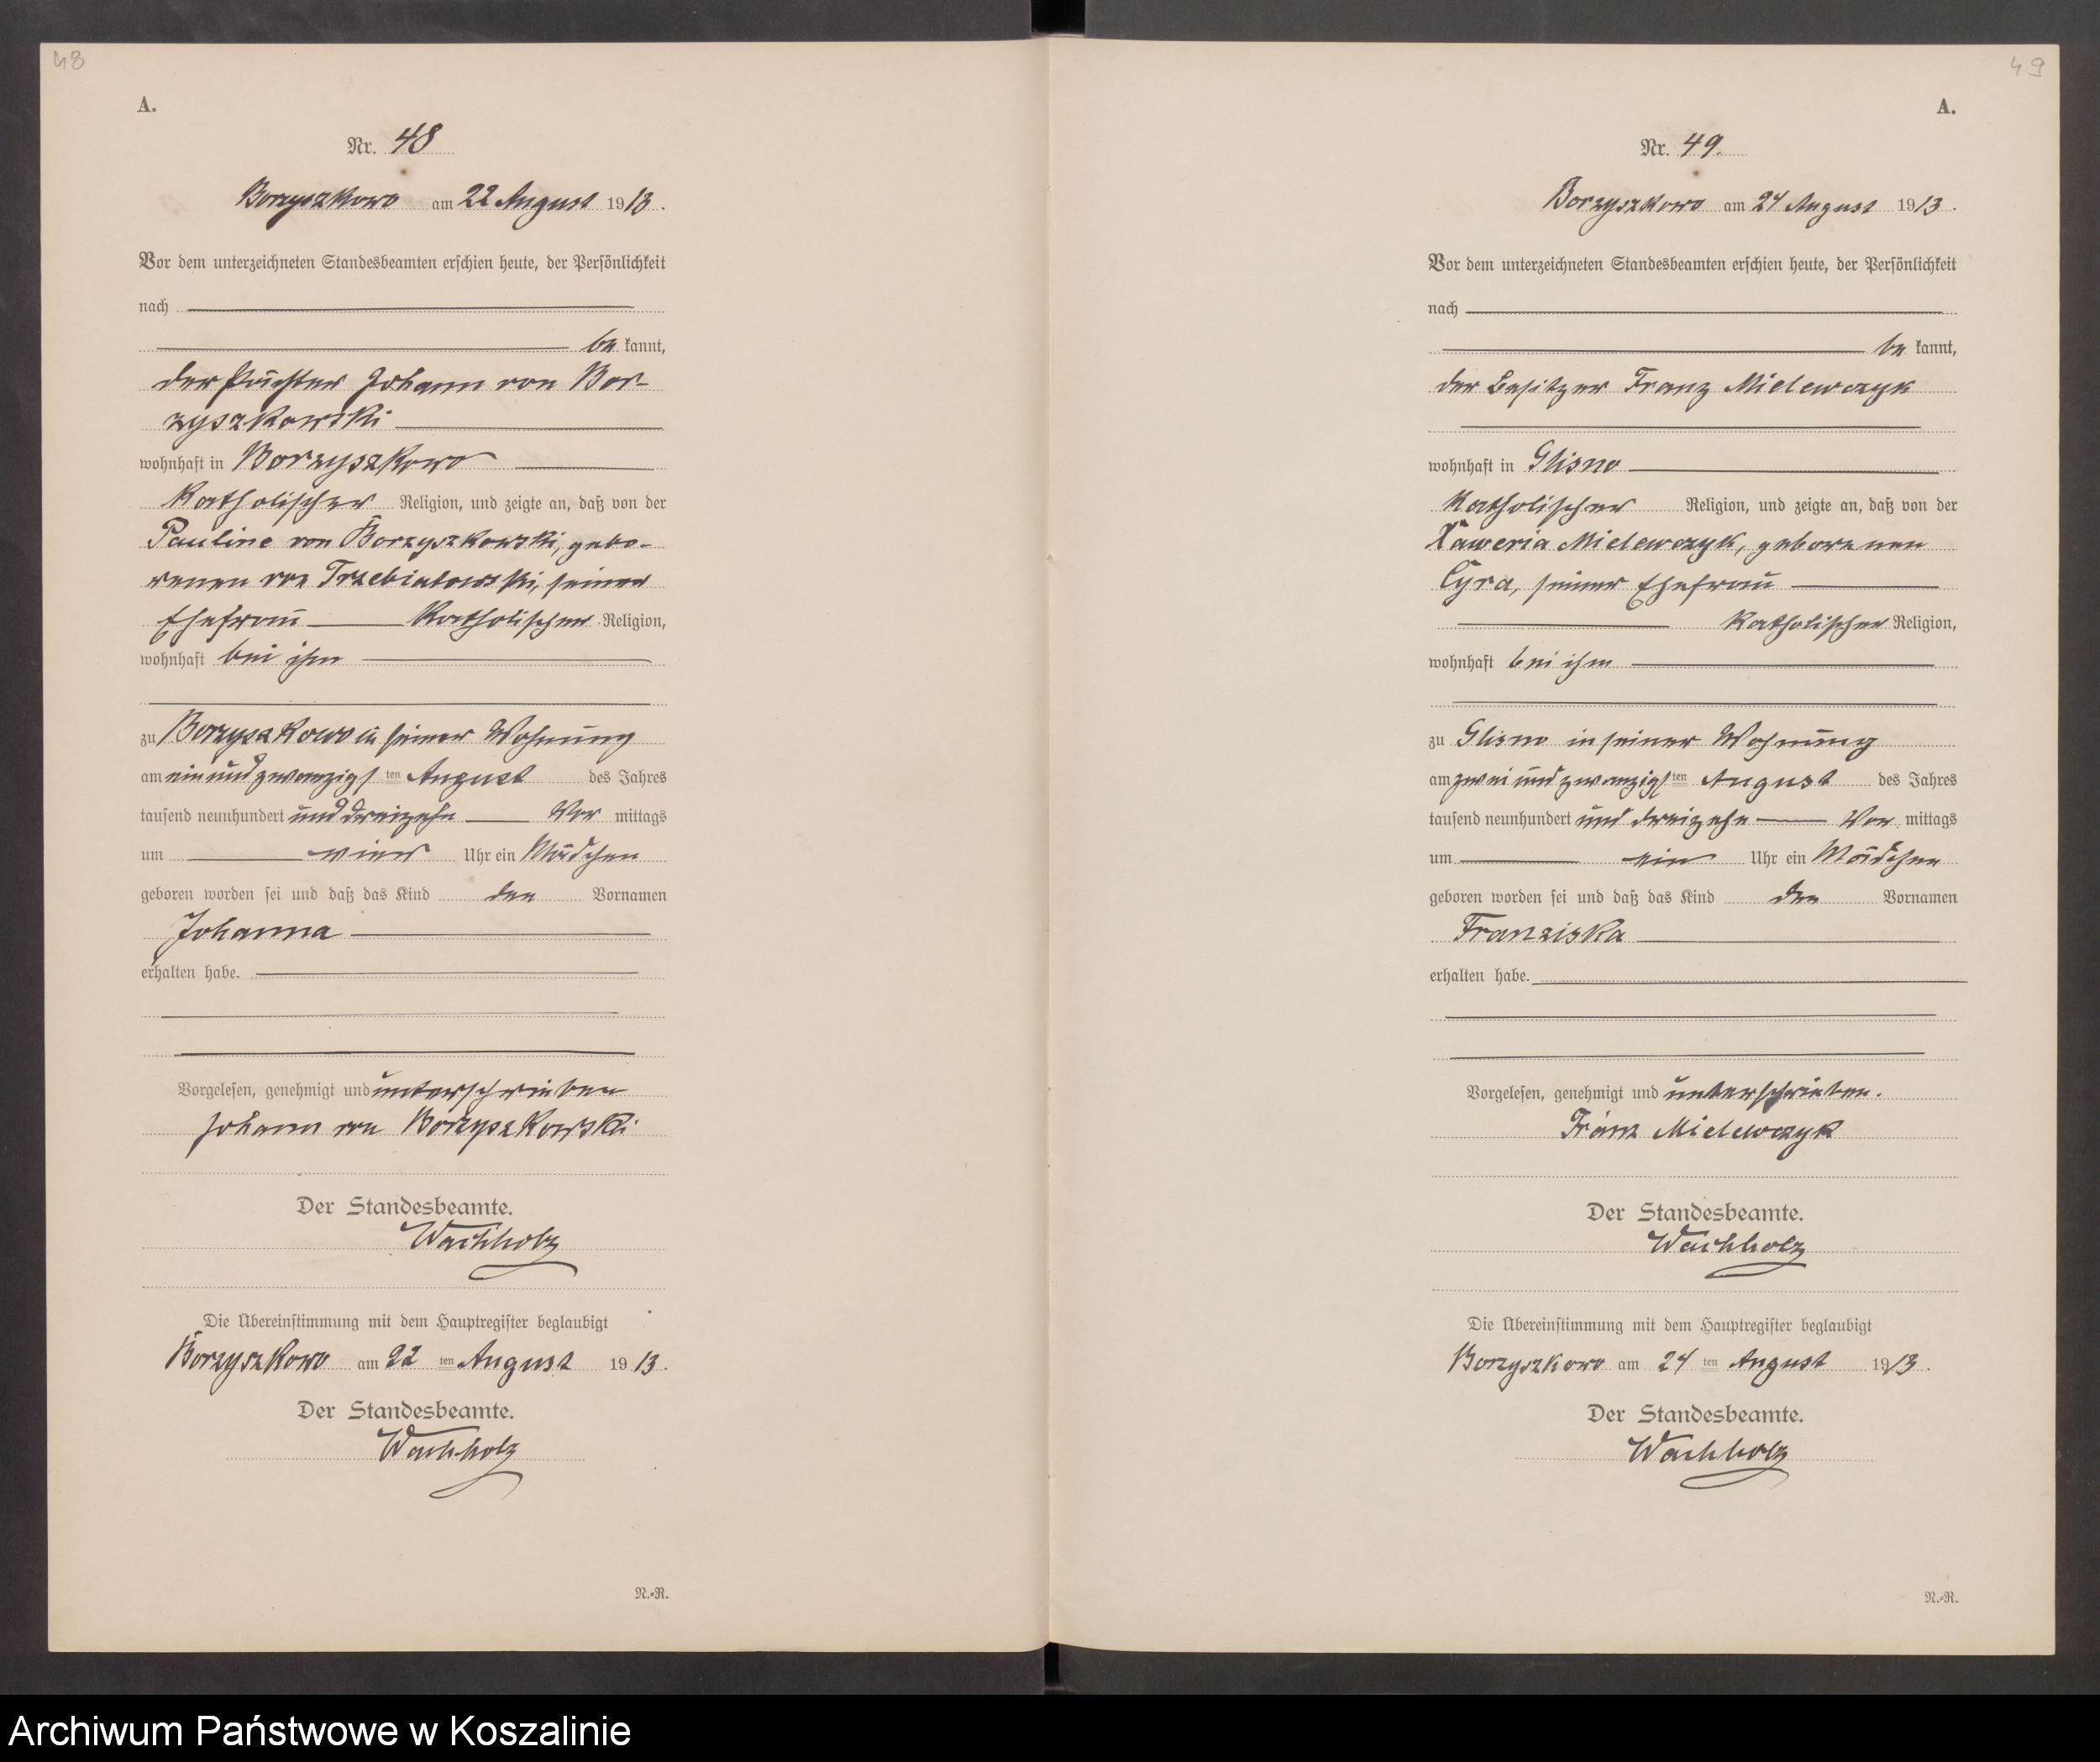 48
A.
Nr. 48
Borzyszkowo am 22 August 1913.
Vor dem unterzeichneten Standesbeamten erschien heute, der Persönlichkeit
nach
be kannt,
der Pächter Johann von Bor-
zyszkowski
wohnhaft in Borzyszkowo
katholischer Religion, und zeigte an, daß von der
Pauline von Borzyszkowski, gebo-
renen von Trzebiatowski, seiner
Ehefrau katholischer Religion,
wohnhaft bei ihm
zu Borzyszkowo in seiner Wohnung
am ein und zwanzigsten August des Jahres
tausend neunhundert und dreizehn Vor mittags
um vier Uhr ein Mädchen
geboren worden sei und daß das Kind den Vornamen
Johanna
erhalten habe.
Vorgelesen, genehmigt und unterschrieben
Johann von Borzyszkowski
Der Standesbeamte.
Wachholz
Die Übereinstimmung mit dem Hauptregister beglaubigt
Borzyszkowo am 22 ten August 1913.
Der Standesbeamte.
Wachholz
N.-R.
49
A.
Nr. 49.
Borzyszkowo am 24 August 1913.
Vor dem unterzeichneten Standesbeamten erschien heute, der Persönlichkeit
nach
be kannt,
der Besitzer Franz Mielewczyk
wohnhaft in Glisno
katholischer Religion, und zeigte an, daß von der
Xaweria Mielewczyk, geborenen
Cyra, seiner Ehefrau
katholischer Religion,
wohnhaft bei ihm
zu Glisno in seiner Wohnung
am zwei und zwanzigsten August des Jahres
tausend neunhundert und dreizehn Vor mittags
um ein Uhr ein Mädchen
geboren worden sei und daß das Kind den Vornamen
Franziska
erhalten habe.
Vorgelesen, genehmigt und unterschrieben.
Franz Mielewczyk
Der Standesbeamte.
Wachholz
Die Übereinstimmung mit dem Hauptregister beglaubigt
Borzyszkowo am 24 ten August 1913.
Der Standesbeamte.
Wachholz
N.-R.
Archiwum Państwowe w Koszalinie